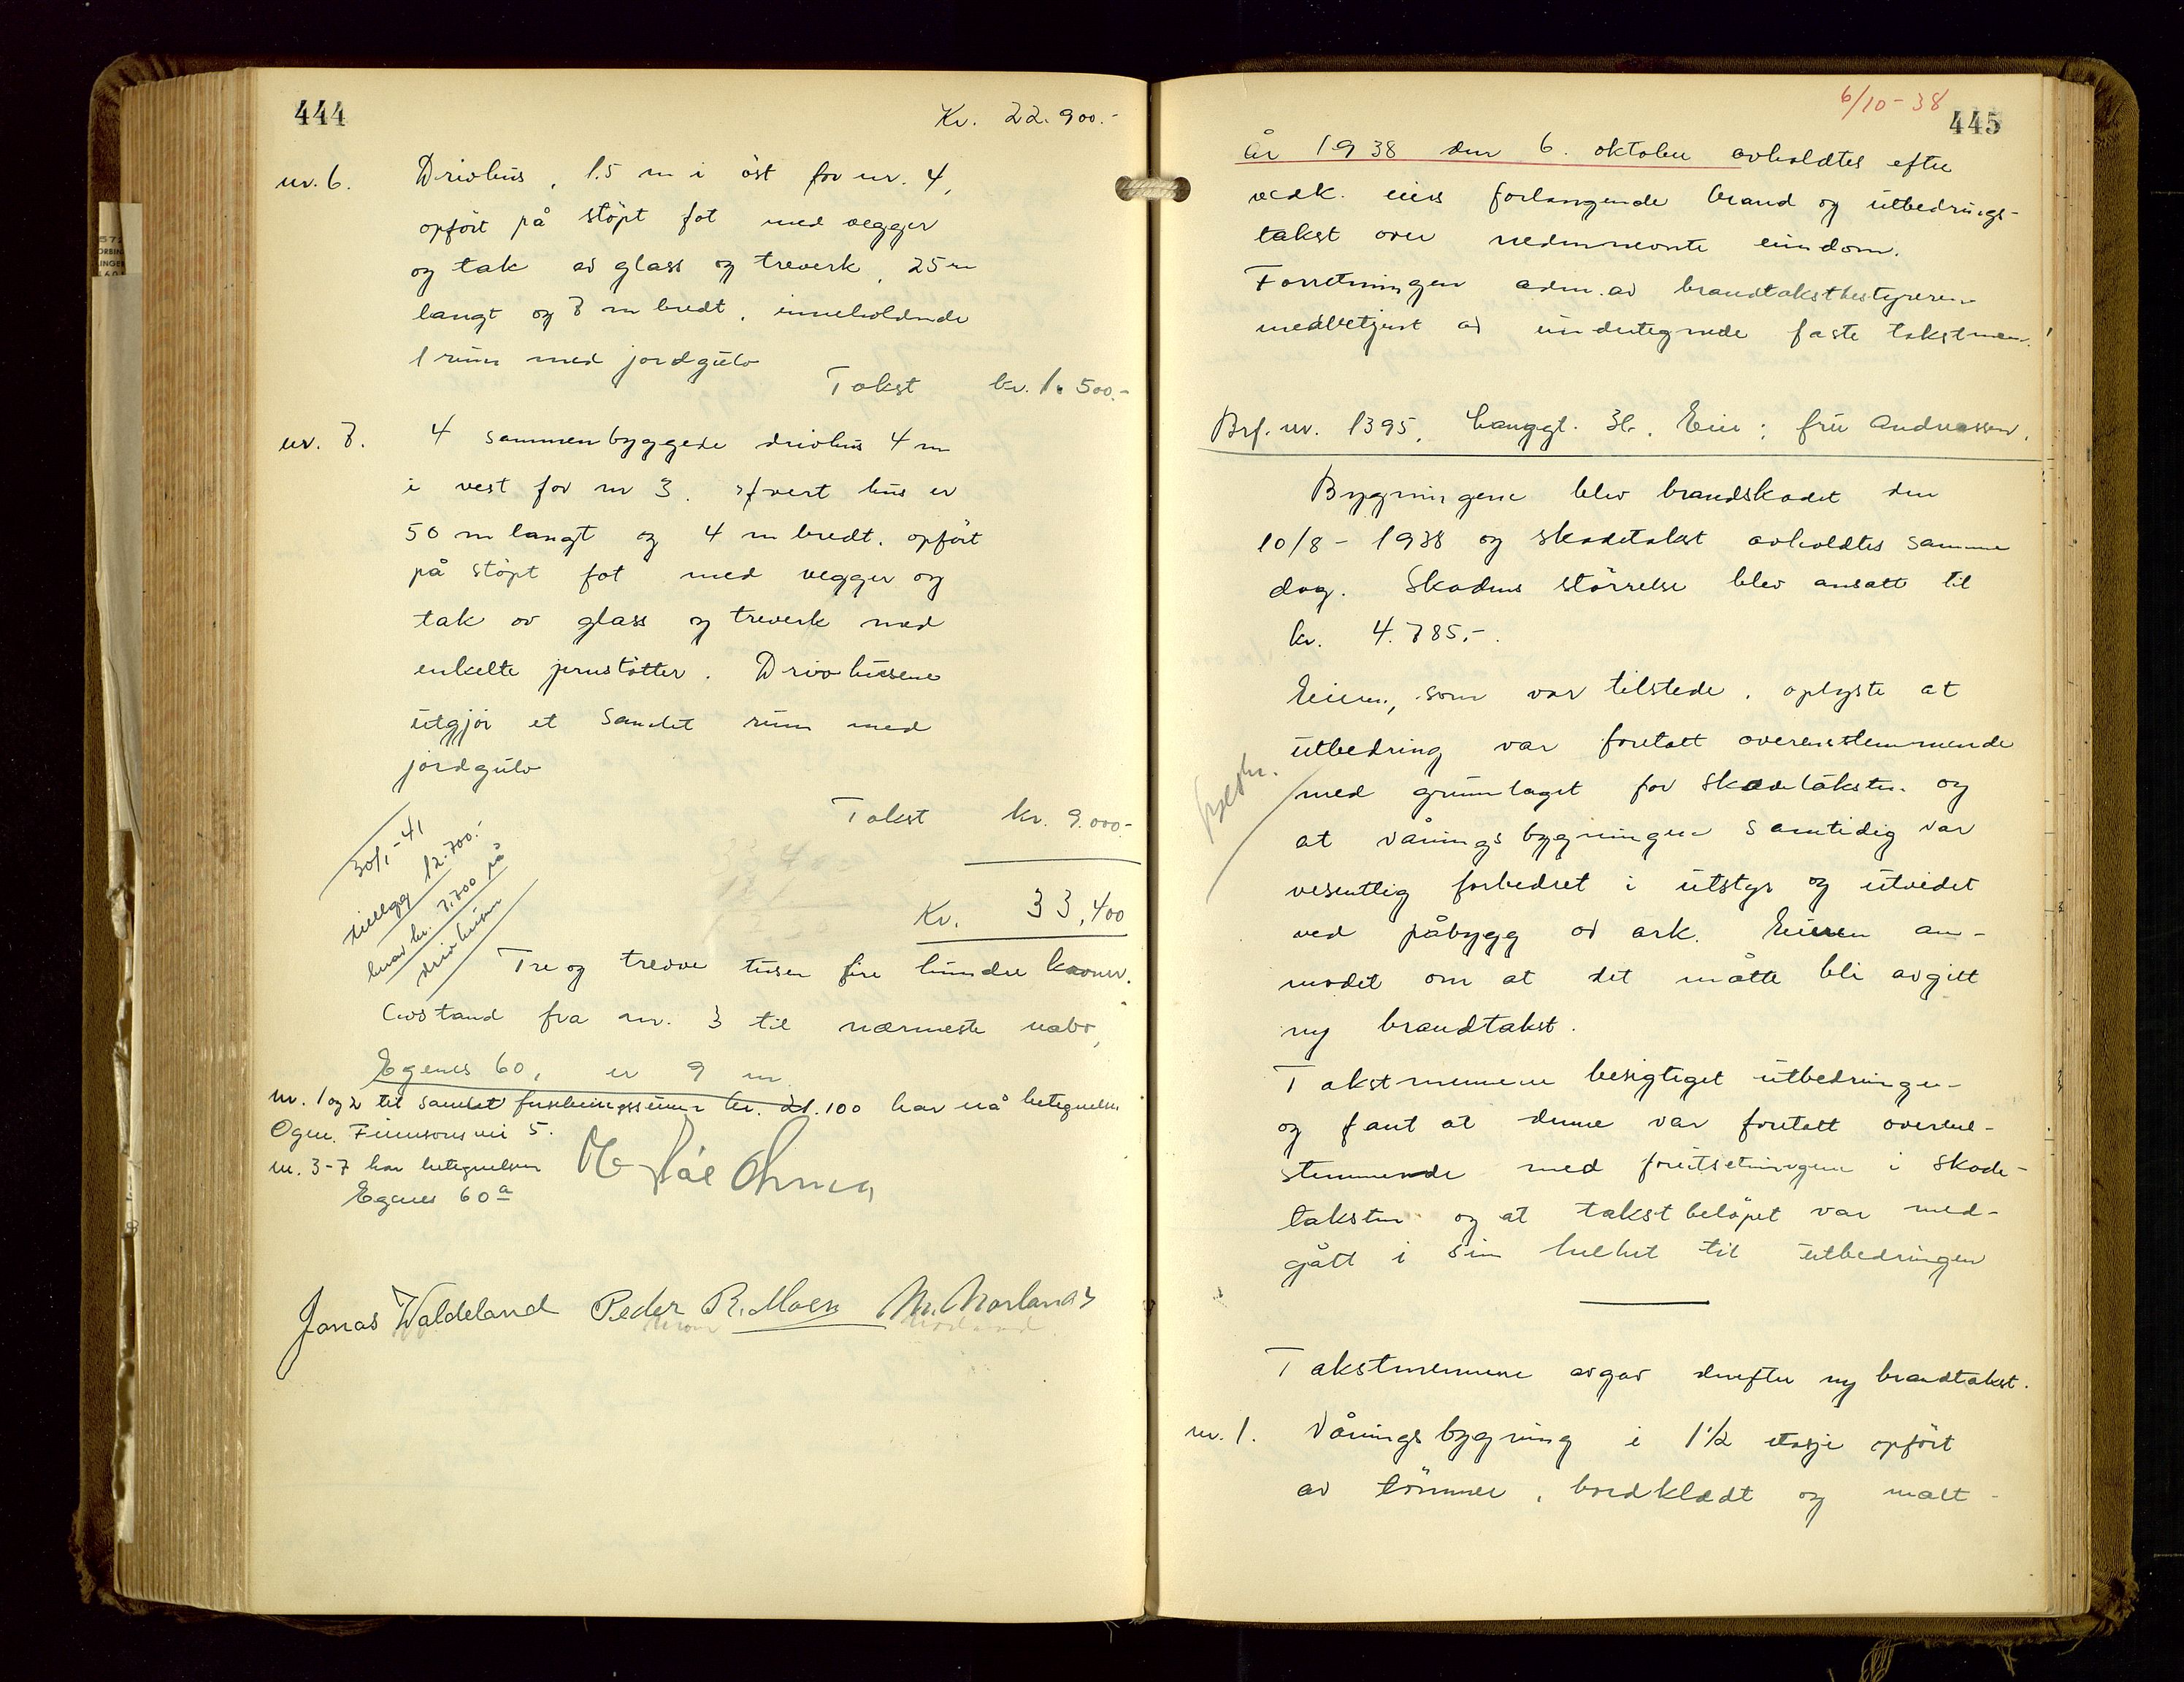 444
Kr. 22.900.-
nr. 6. Drivhus, 1.5 m i öst for nr. 4,
opfört på stöpt fot med vegger
og tak av glass og treverk, 25 m
langt og 7 m bredt, inneholdende
1 rum med jordgulv
Takst kr. 1.500.-
nr. 7. 4 sammenbyggede drivhus 4 m
i vest for nr 3. Hvert hus er
50 m langt og 4 m bredt, opfört
på stöpt fot med vegger og
tak av glass og treverk med
enkelte jernstötter. Drivhusene
utgjör et samlet rum med
jordgulv
Takst kr. 9.000.-
Kr. 33,400
30/1-41
tillegg 12.700.-
hvorav kr. 7.700 på
drivhusene
Tre og tredve tusen fire hundre kroner.
Avstand fra nr. 3 til nærmeste nabo,
Egenes 60, er 9 m
nr. 1 og 2 til samlet forsikringssum kr. 21.100 har nå betegnelsen
Ogn. Finnsons vei 5.
nr. 3-7 har betegnelsen
Egenes 60a
Jonas Waldeland Peder R. Moen M. Norland
6/10-38
445
År 1938 den 6. oktober avholdtes efter
vedk. eiers forlangende brand og utbedrings-
takst over nedennevnte eiendom.
Forretningen adm. av brandtakstbestyreren
medbetjent av undertegnede faste takstmenn!
Brf. nr. 1395, Langgt. 36. Eier: fru Andreassen.
Bygningene blev brandskadet den
10/8-1938 og skadetakst avholdtes samme
dag. Skadens störrelse blev ansatt til
kr. 4.785.-.
Eieren, som var tilstede, oplyste at
utbedring var foretatt overensstemmende
med grunnlaget for skadetaksten og
at våningsbygningen samtidig var
vesentlig forbedret i utstyr og utvidet
ved påbygg av ark. Eieren an-
modet om at det måtte bli avgitt
ny brandtakst.
Takstmennene besigtiget utbedringen
og fant at denne var foretatt overens-
stemmende med forutsetningene i skade-
taksten og at takstbelöpet var med-
gått i sin helhet til utbedringen
Takstmennene avgav derefter ny brandtakst.
nr. 1. Våningsbygning i 1 1/2 etasje opfört
av tömmer, bordklædt og malt